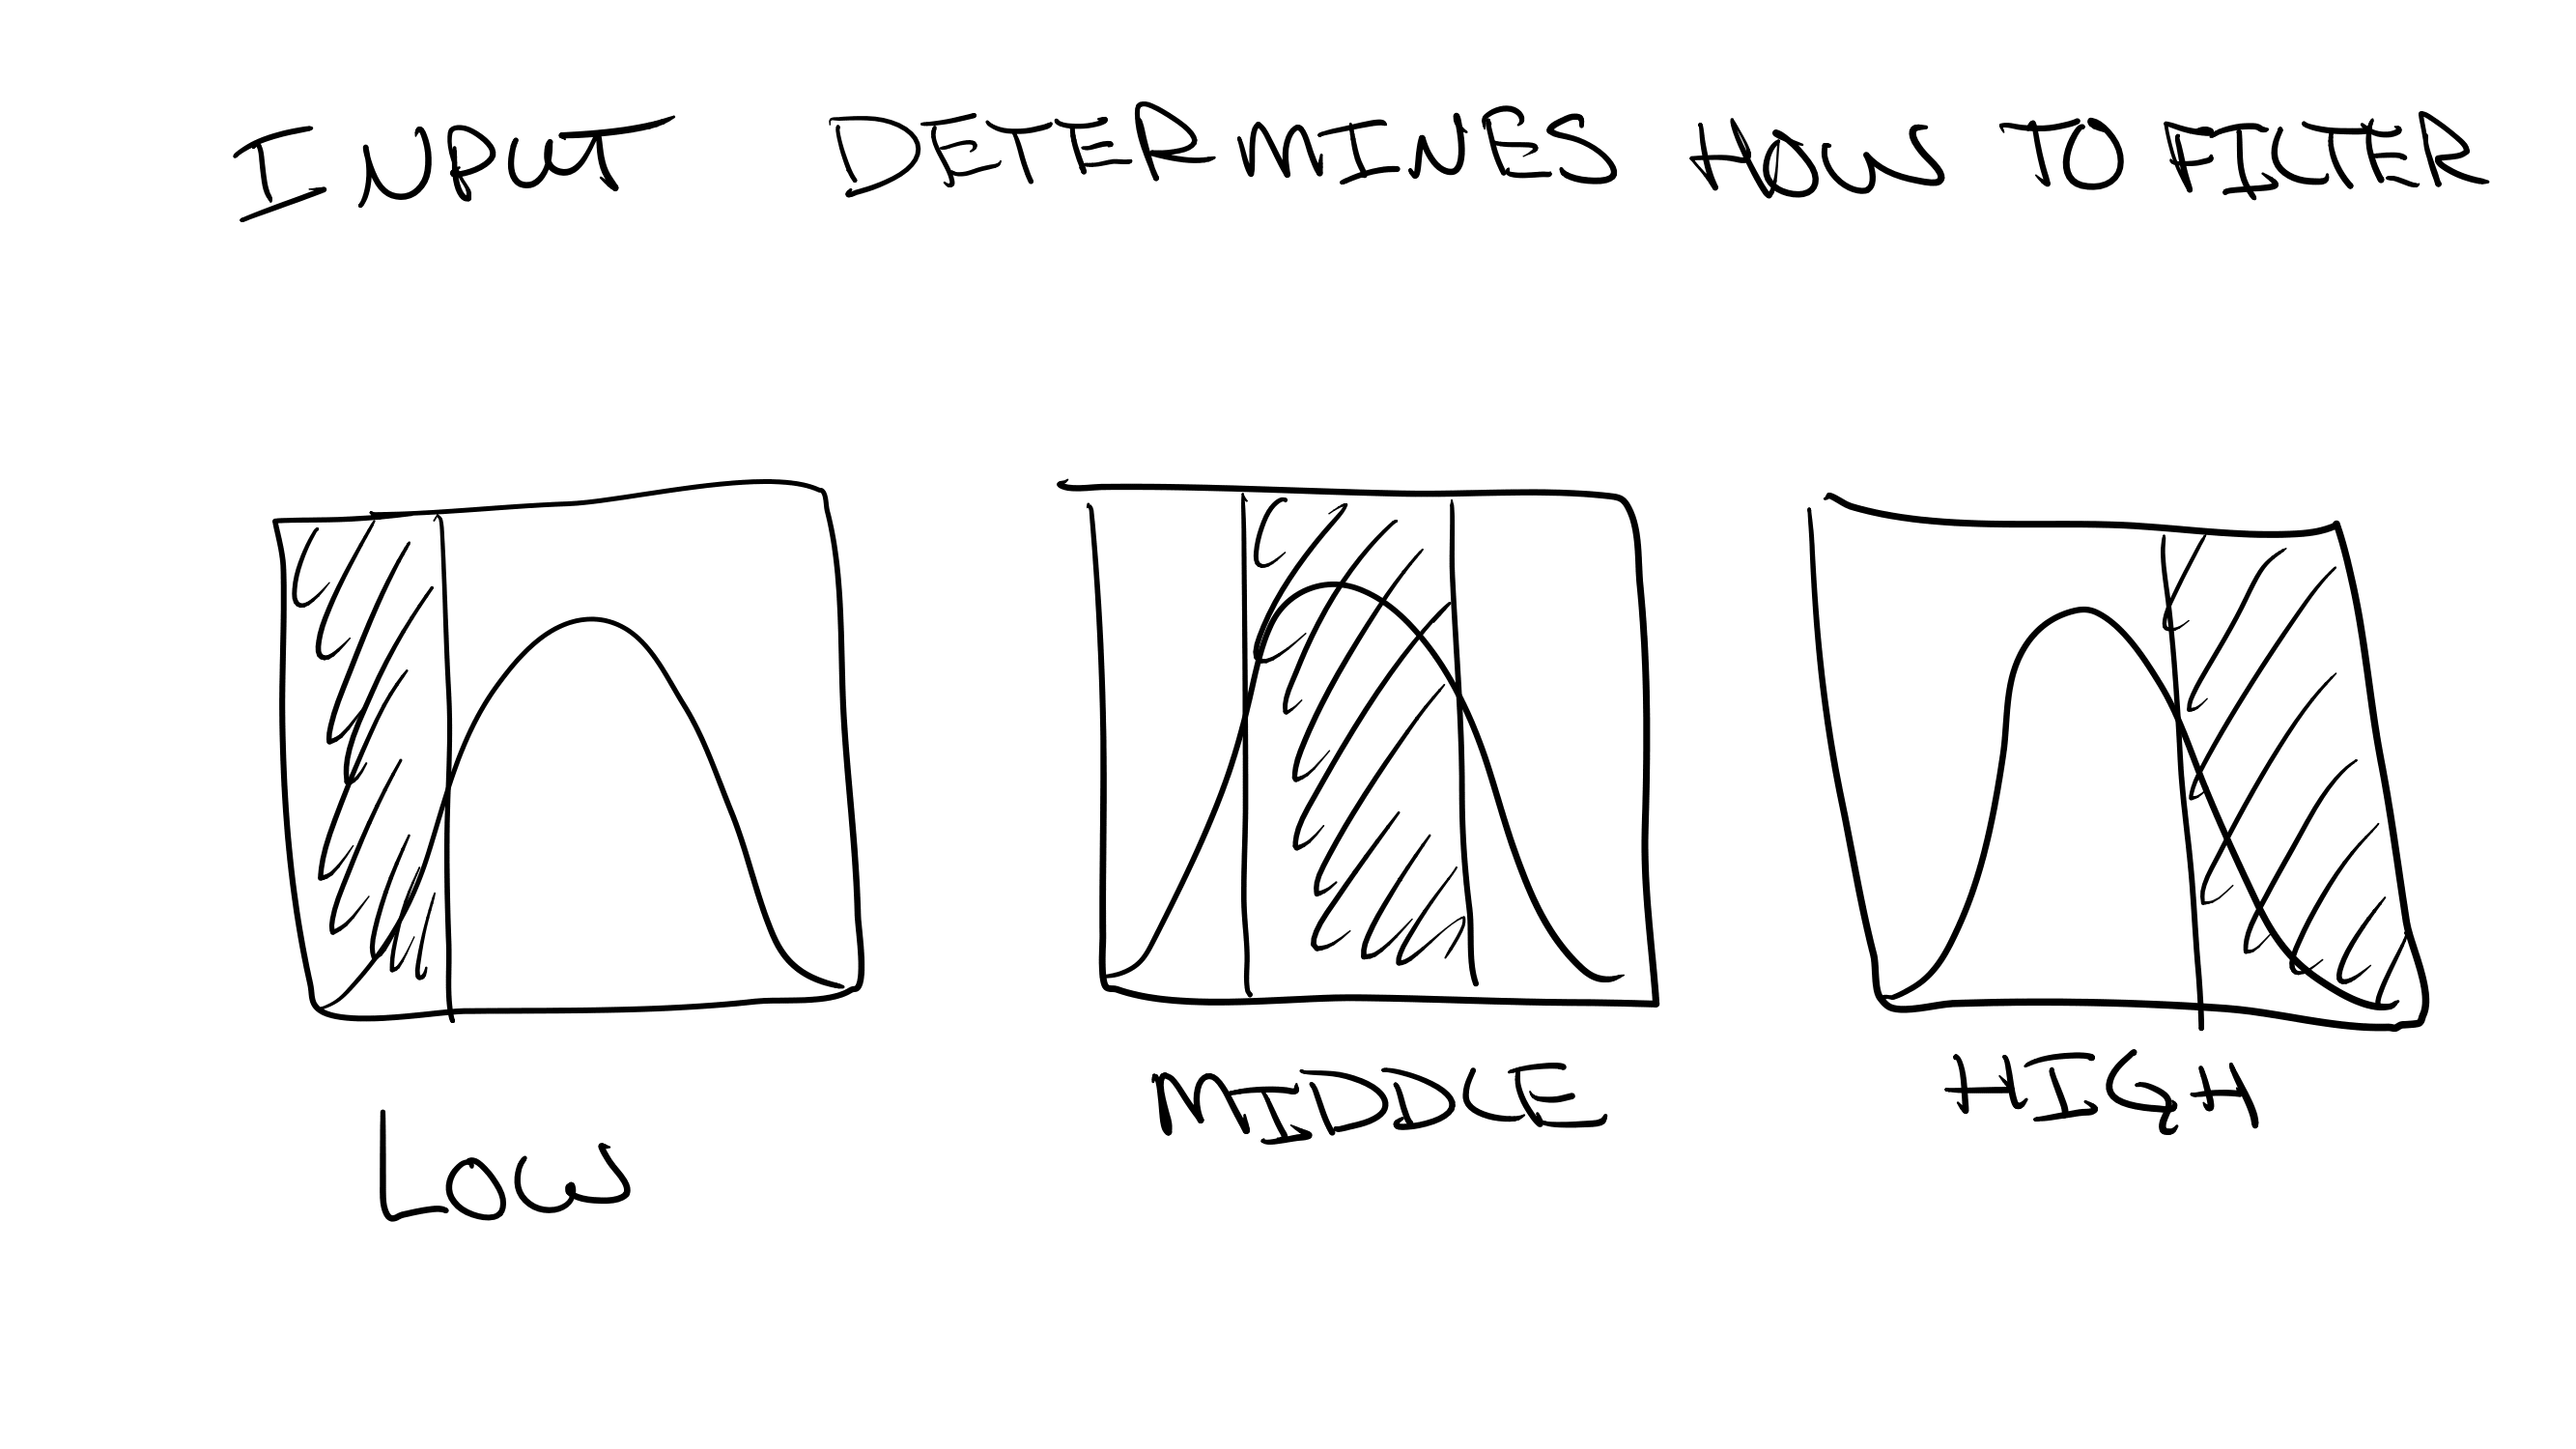 INPUT DETERMINES HOW TO FILTER
LOW
MIDDLE
HIGH